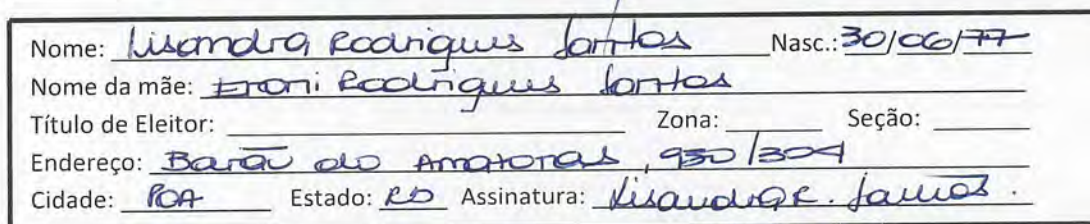 Nome: Lisandra Rodrigues Santos Nasc.: 30/06/77
Nome da mãe: Eroni Rodrigues Santos
Título de Eleitor: Zona: Seção:
Endereço: Barão do Amazonas, 930/304
Cidade: POA Estado: RS Assinatura: Lisandra R. Santos.